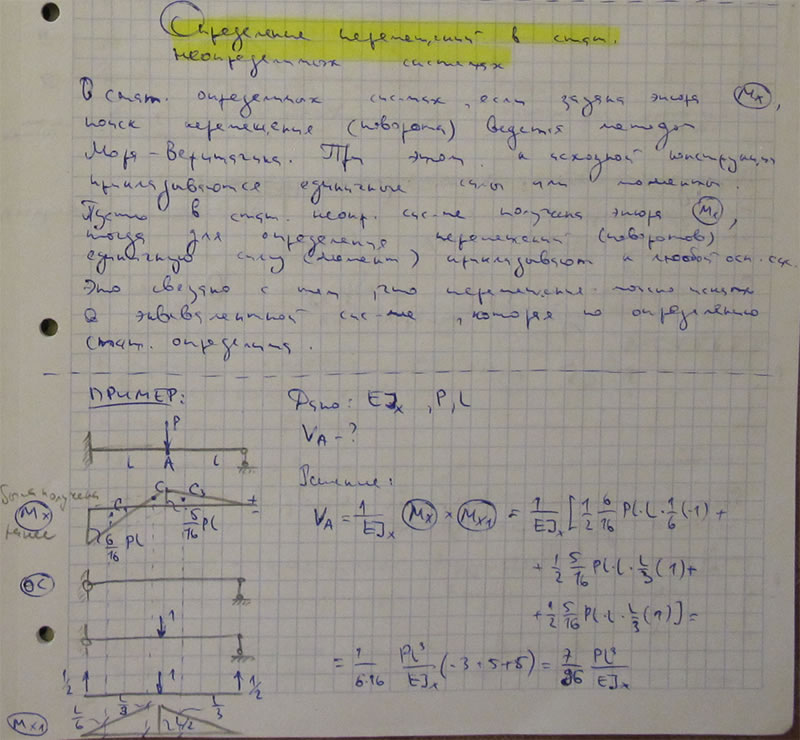 Определение перемещений в стат.
неопределимых системах
В стат. определимых сис-мах, если задана эпюра Mx,
поиск перемещения (поворота) ведется методом
Мора-Верещагина. При этом к исходной конструкции
прикладываются единичные силы или моменты.
Пусть в стат. неопр. сис-ме получена эпюра Mx,
тогда для определения перемещений (поворотов)
единичную силу (момент) прикладывают к любой осн. сис.
Это связано с тем, что перемещение можно искать
в эквивалентной сис-ме, которая по определению
стат. определима.
ПРИМЕР:
Дано: EJx, P, L
VA - ?
P
L A L
Решение:
Была получена
Mx
ранее
C1 C2 C3
+
-
6/16 Pl
5/16 Pl
VA = 1/EJx Mx × Mx1 = 1/EJx [1/2 6/16 Pl · L · L/6 (-1) +
+ 1/2 5/16 Pl · L · L/3 (1) +
+ 1/2 5/16 Pl · L · L/3 (1)] =
= 1/6·16 Pl³/EJx (-3+5+5) = 7/96 Pl³/EJx
ОС
1
1/2 1 1/2
Mx1
L/6 L/3 L/2 L/3